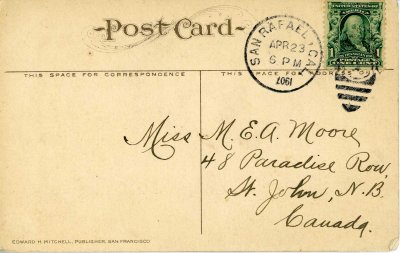 Post Card
SAN RAFAEL, CAL.
APR 23
6 PM
1907
THIS SPACE FOR CORRESPONDENCE
THIS SPACE FOR ADDRESS
1
1
POSTAGE
ONE CENT
Miss M. E. A. Moore
48 Paradise Row,
St. John, N. B.
Canada.
EDWARD H. MITCHELL, PUBLISHER, SAN FRANCISCO